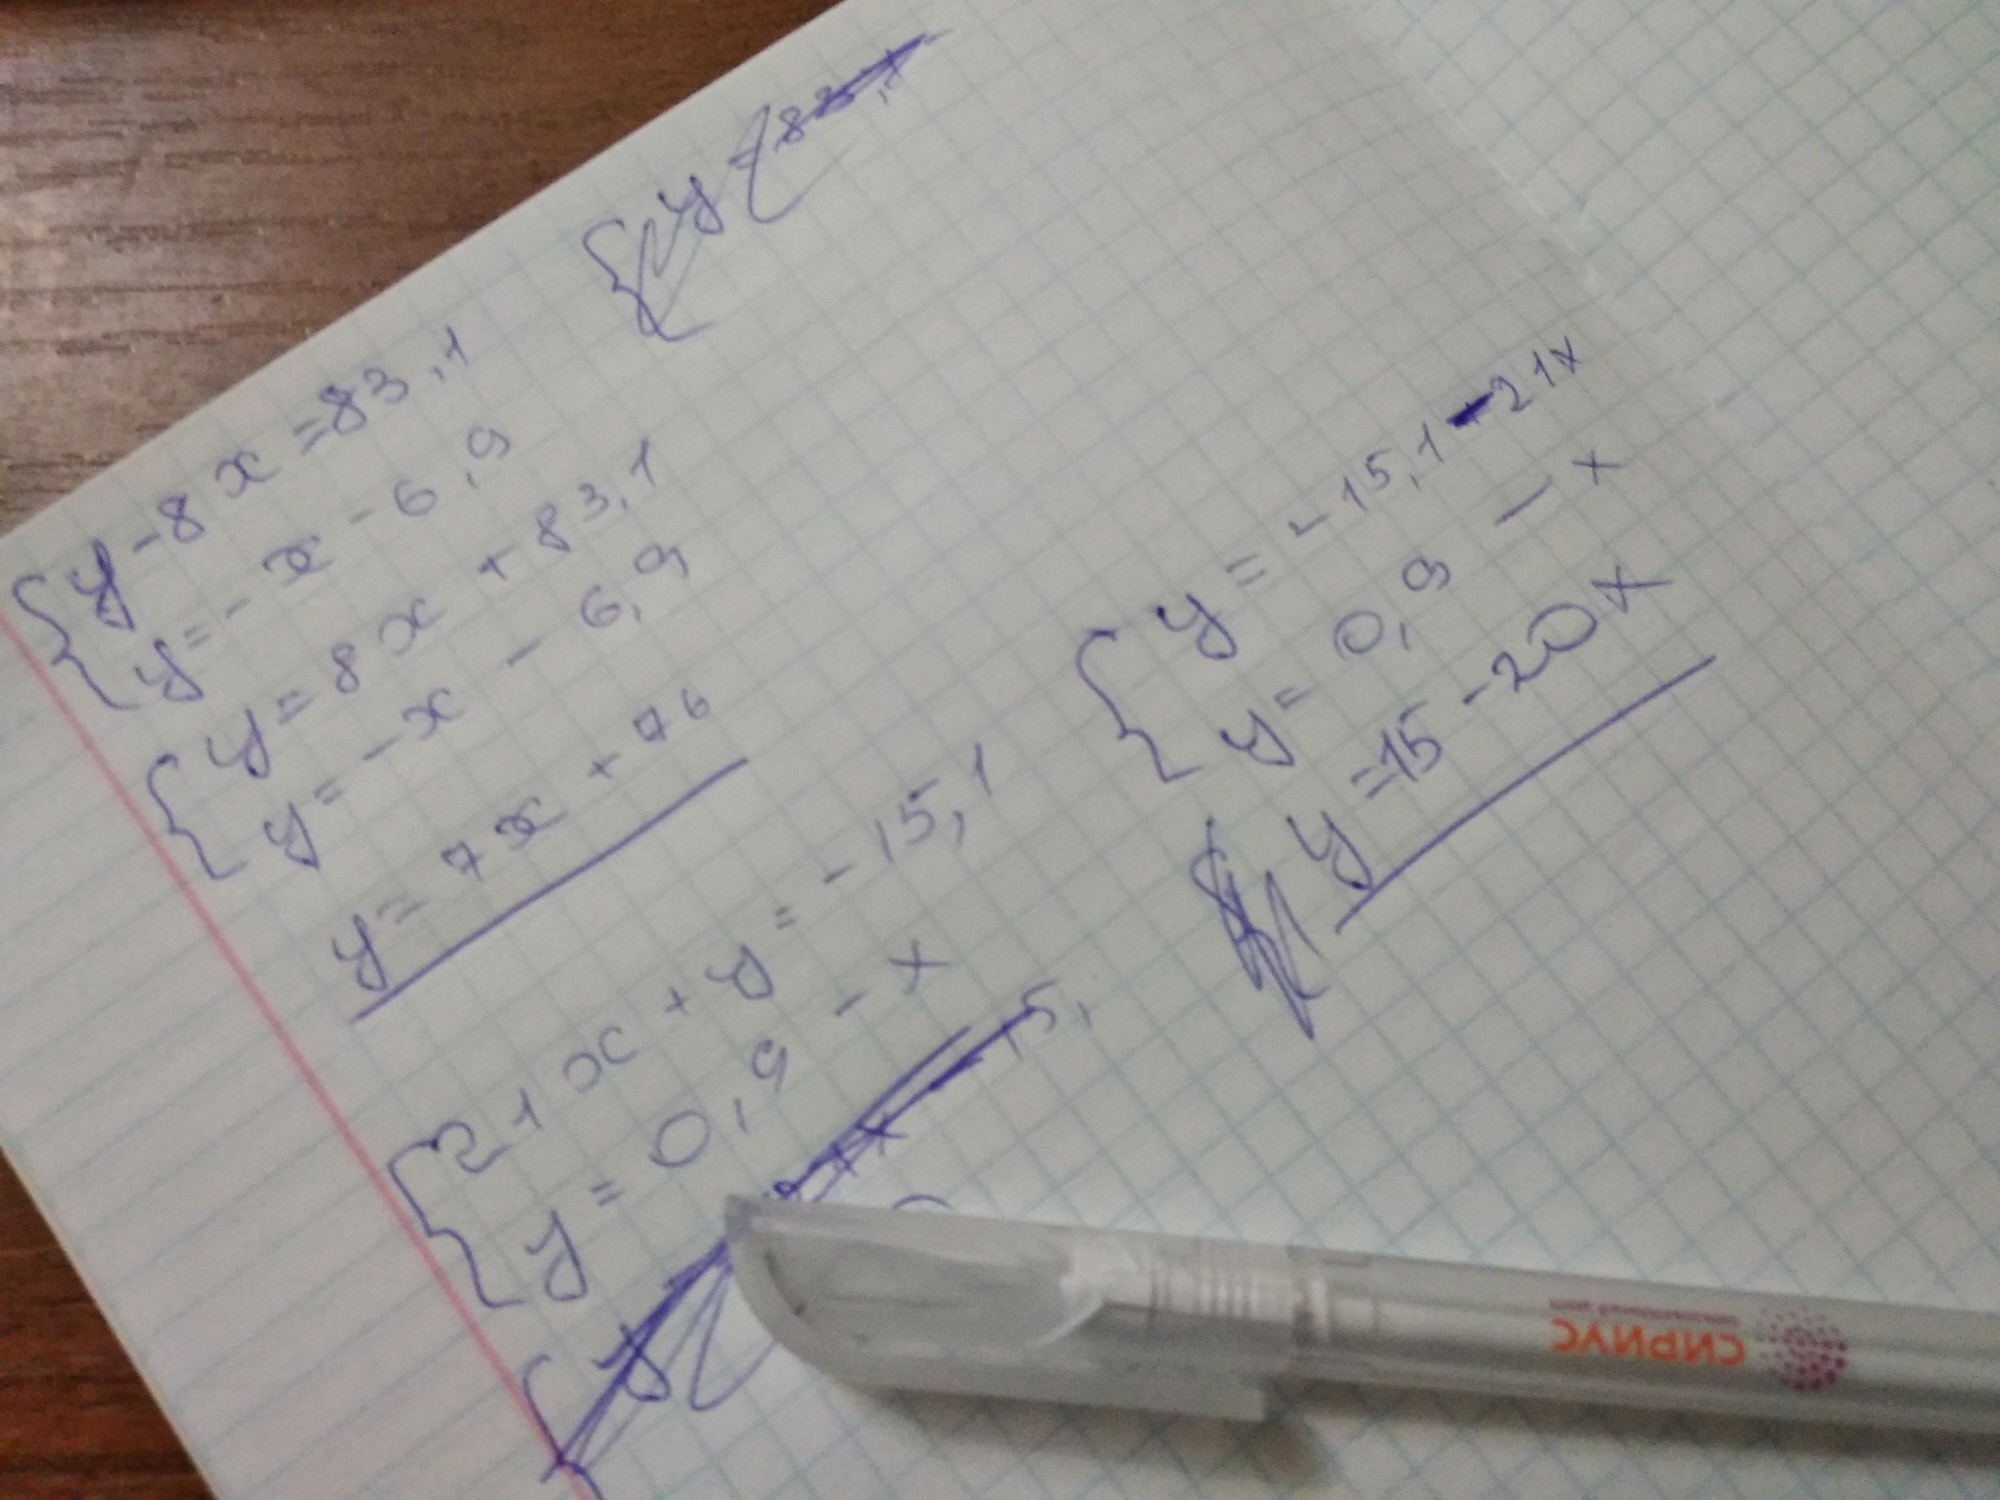 y - 8x = 83,1
y = - x - 6,9
y = 8x + 83,1
y = - x - 6,9
y = 7x + 76
21x + y = - 15,1
y = 0,9 - x
- 15,
y = 83,
y = - 15,1 - 21x
y = 0,9 - x
y = 15 - 20x
СИРИУС